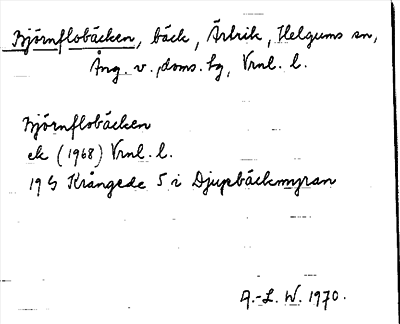 Björnflobäcken, bäck, Ärtrik, Helgums sn,
Ång. v., doms. hg, Vrnl. l.
Björnflobäcken
ek (1968) Vrnl. l.
19 G Krångede 5 i Djupbäckmyran
A.-L. W. 1970.